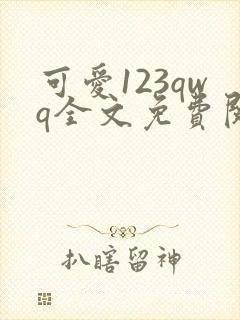 可愛123qw
q全文免費閱
扒瞎留神